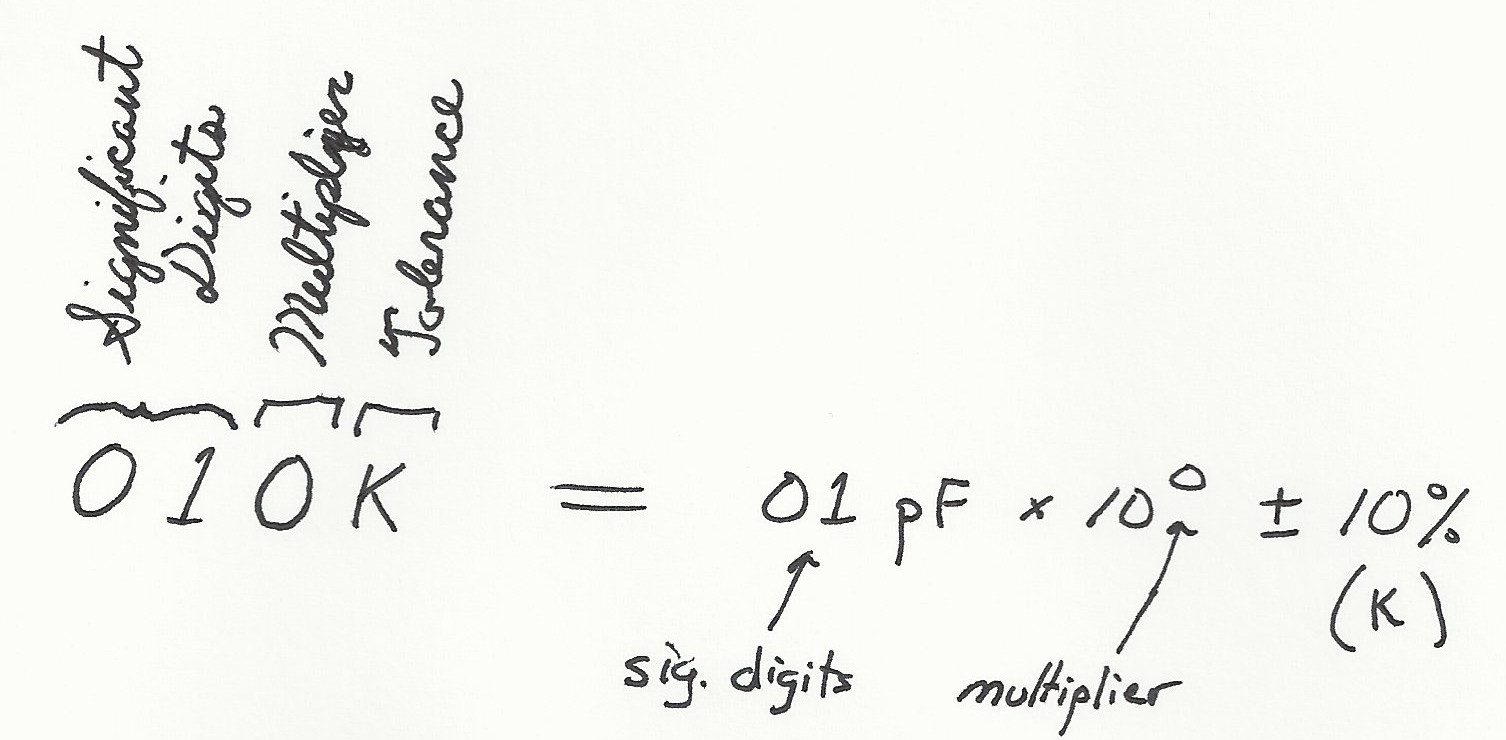 Significant
Digits
Multiplier
Tolerance
010K = 01 pF × 10⁰ ± 10%
(K)
sig. digits
multiplier